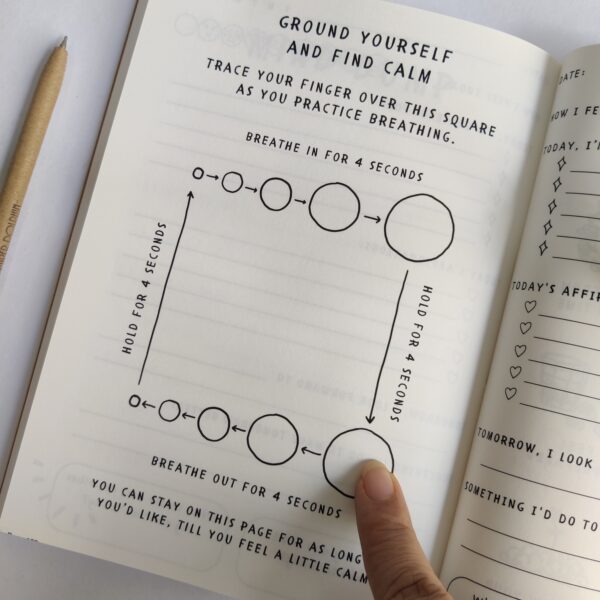 GROUND YOURSELF
AND FIND CALM
TRACE YOUR FINGER OVER THIS SQUARE
AS YOU PRACTICE BREATHING.
BREATHE IN FOR 4 SECONDS
HOLD FOR 4 SECONDS
HOLD FOR 4 SECONDS
BREATHE OUT FOR 4 SECONDS
YOU CAN STAY ON THIS PAGE FOR AS LONG
YOU'D LIKE, TILL YOU FEEL A LITTLE CALM
DATE:
HOW I FE
TODAY, I'
TODAY'S AFFI
TOMORROW, I LOOK
SOMETHING I'D DO TO